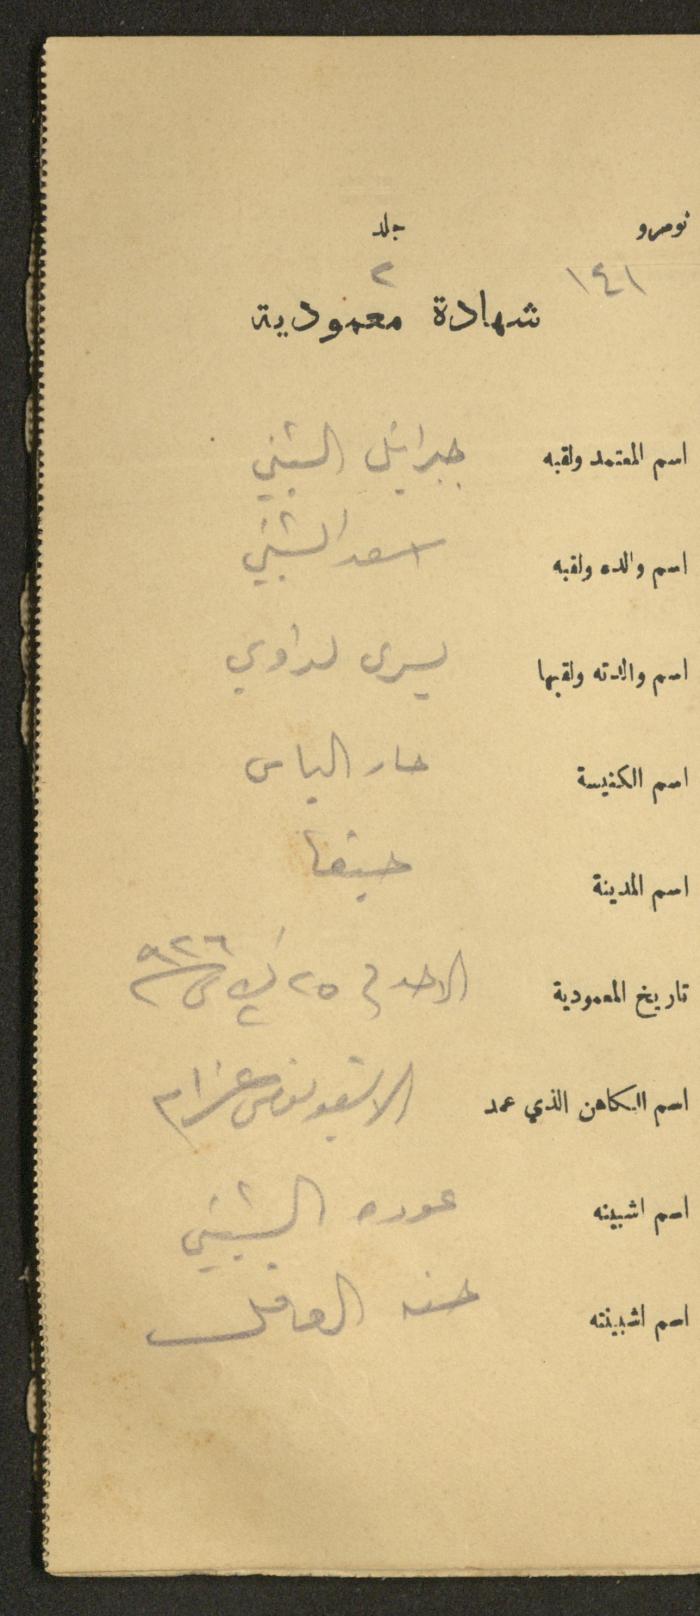 نومرو جلد
١٤١ ٢
شهادة معمودية
اسم المعتمد ولقبه جبرائيل الشبيني
اسم والده ولقبه اسعد الشبيني
اسم والدته ولقبها يسرى لداوي
اسم الكنيسة مار الياس
اسم المدينة حيفا
تاريخ المعمودية الاحد في ٢٥ ك ٩٢٦
اسم الكاهن الذي عمد
اسم اشبينه عوده الشبيني
اسم اشبينته حنه